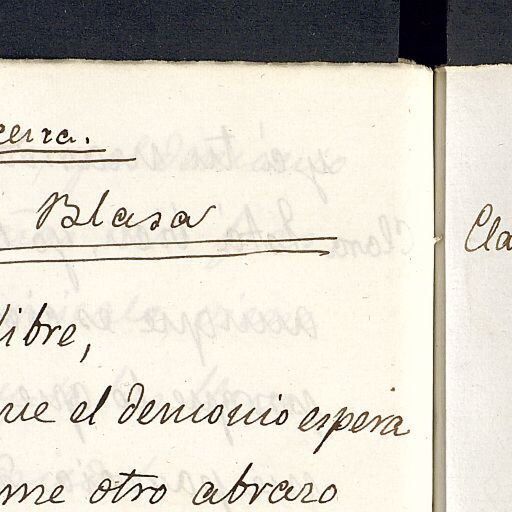 Blasa
libre,
que el demonio espera
me otro abrazo
Cla